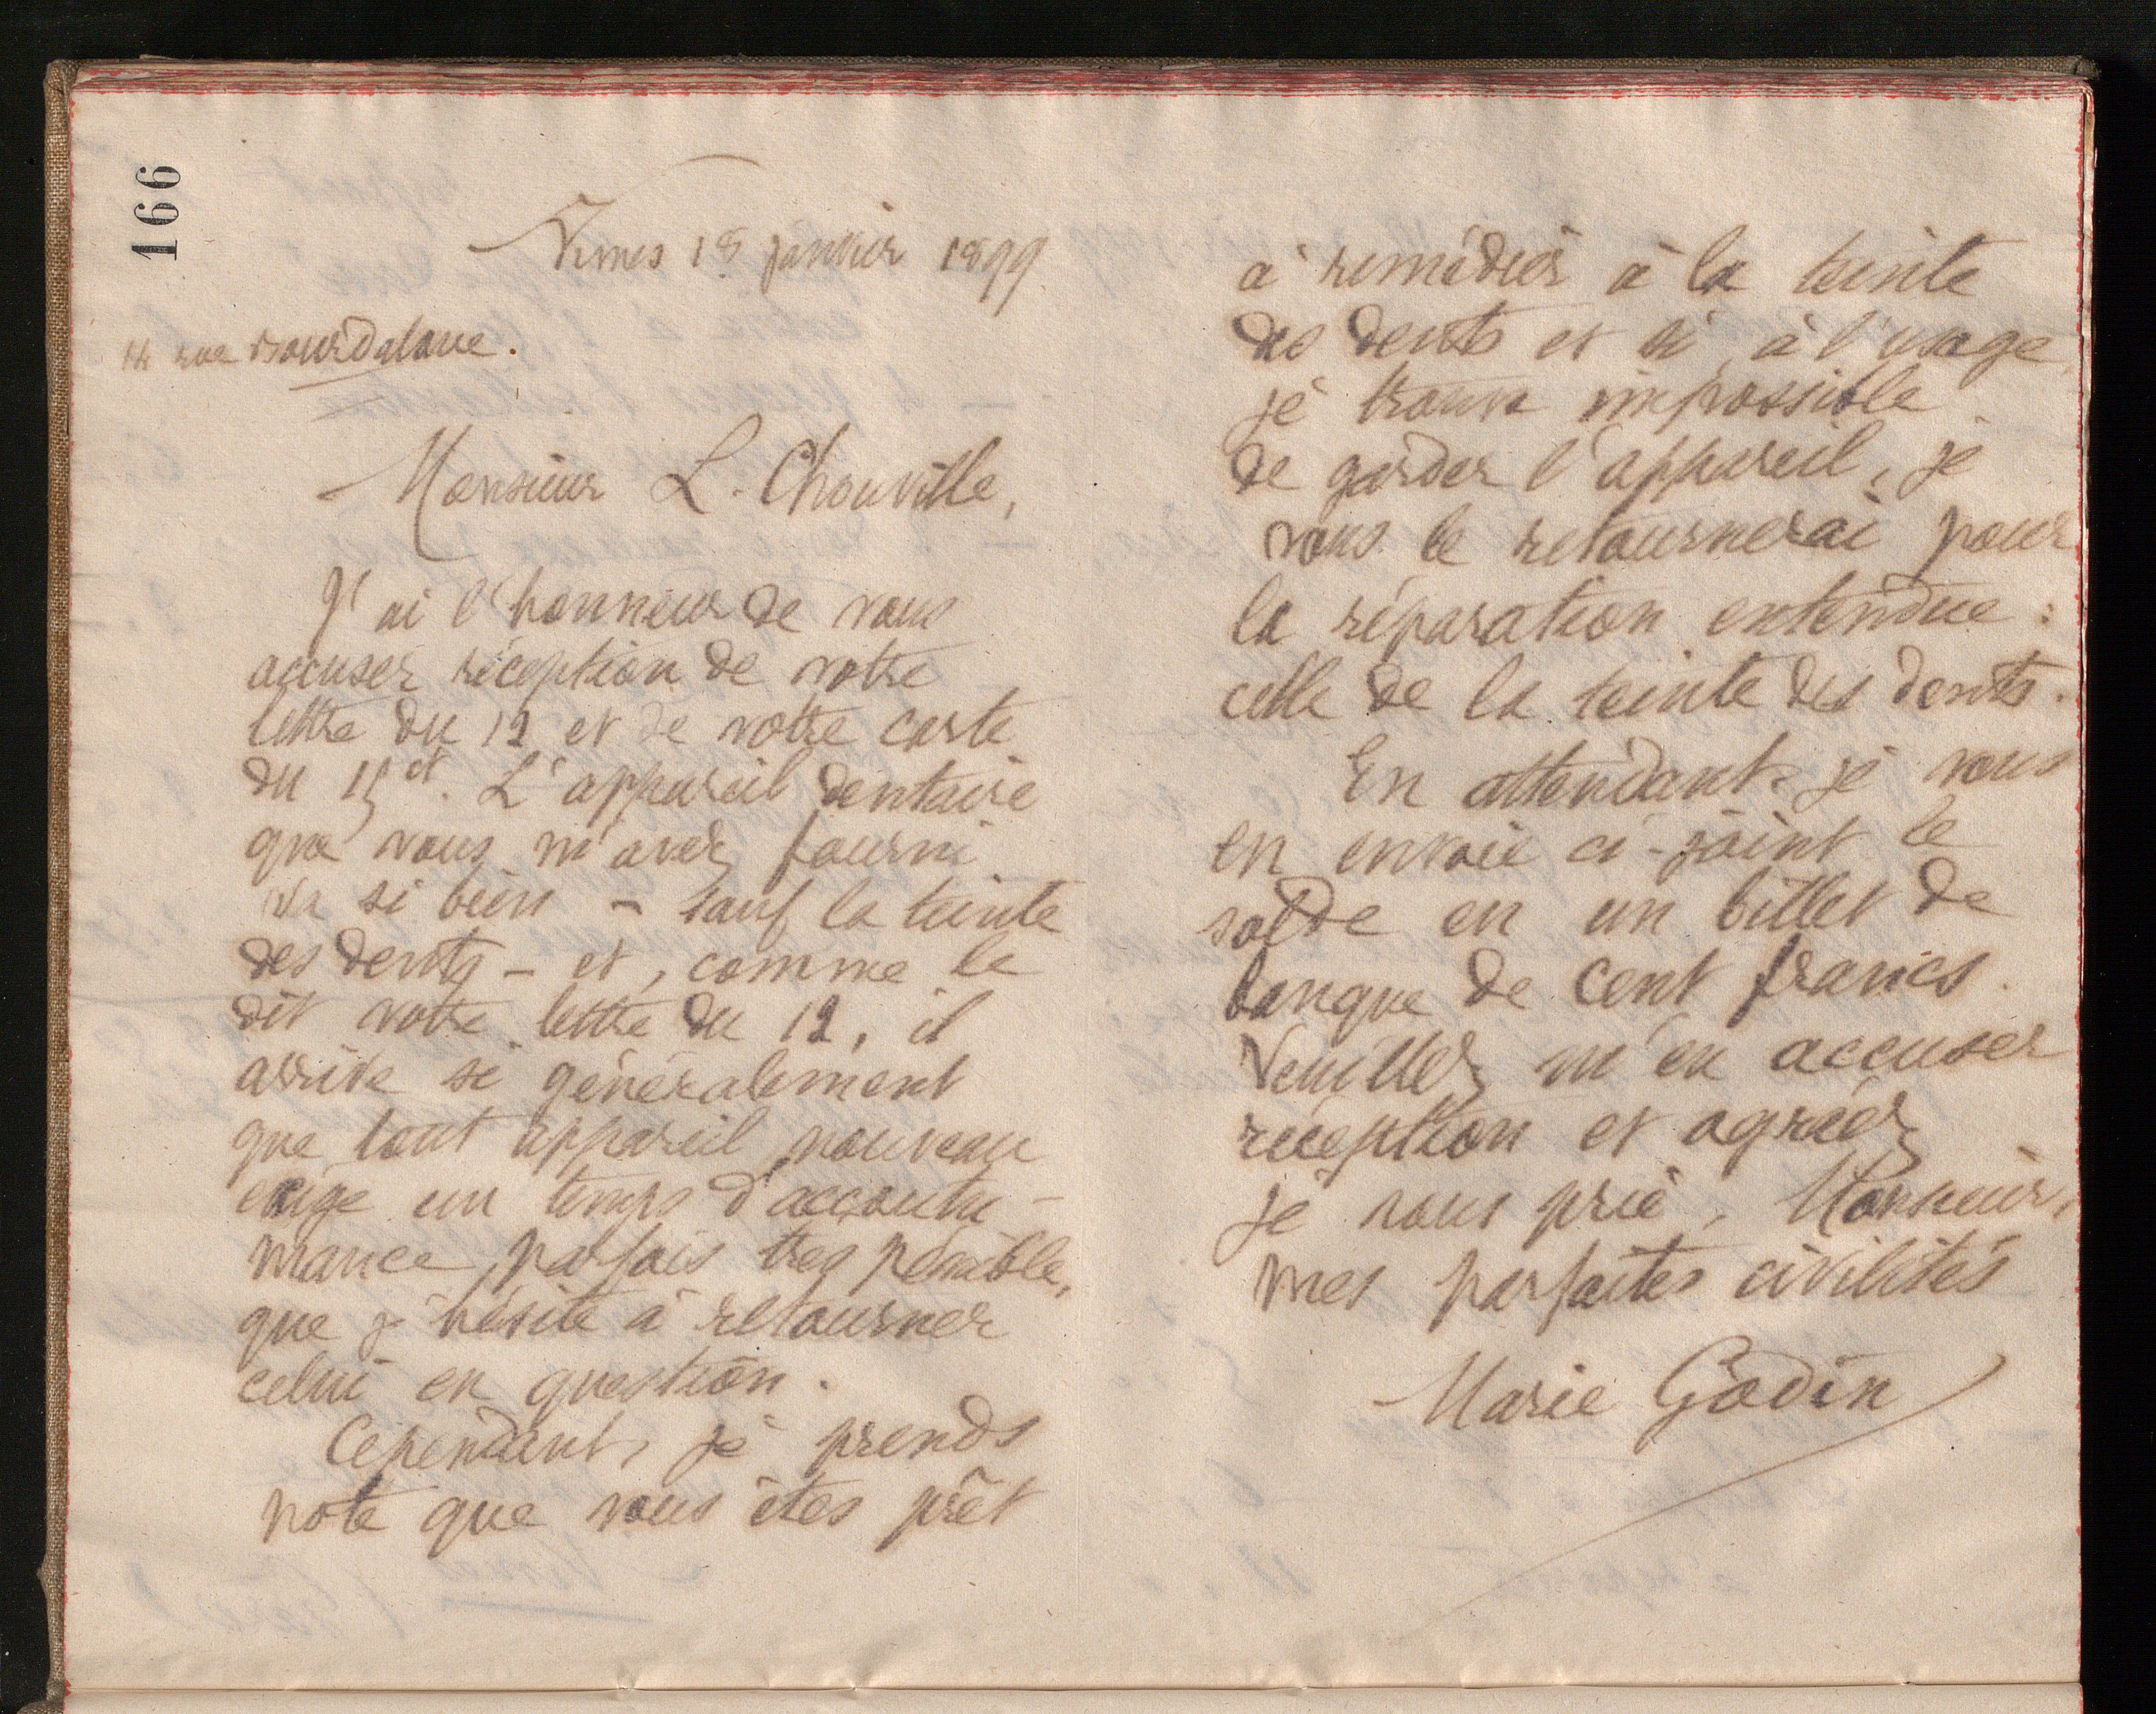 166
Nimes 18 janvier 1899
14 rue Bourdaloue.
Monsieur L. Chouville,
J'ai l'honneur de vous
accuser réception de votre
lettre du 12 et de votre carte
du 15 ct. L'appareil dentaire
que vous m'avez fourni
va si bien - sauf la teinte
des dents - et, comme le
dit votre lettre du 12, il
arrive si généralement
que tout appareil nouveau
exige un temps d'accoutu-
mance parfois très pénible,
que j'hésite à retourner
celui en question.
Cependant, je prends
note que vous êtes prêt
à remédier à la teinte
des dents et si, à l'usage,
je trouve impossible
de garder l'appareil, je
vous le retournerai pour
la réparation entendue :
celle de la teinte des dents.
En attendant, je vous
en envoie ci-joint le
solde en un billet de
banque de cent francs.
Veuillez m'en accuser
réception et agréez
je vous prie, Monsieur,
mes parfaites civilités
Marie Godin